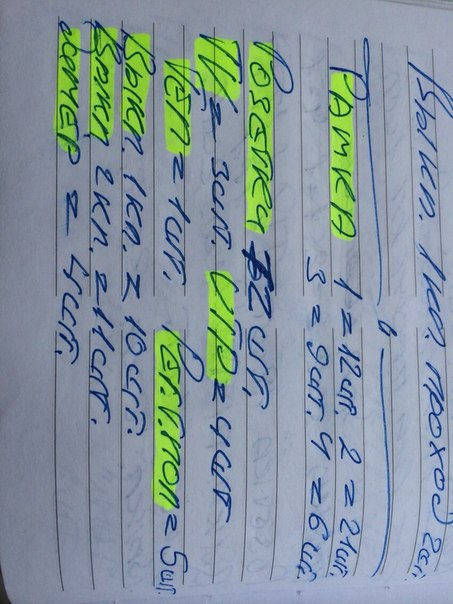 Выкл. 1кл. проход 2шт.
Рамка 1 = 12шт. 2 = 21шт.
3 = 9шт. 4 = 6шт.
Розетки 52шт.
TV = 3шт. UTP = 4шт
Тел = 1шт. Тепл.пол = 5шт.
Выкл. 1кл. = 10шт.
Выкл 2кл. = 11шт.
Димер = 4шт.